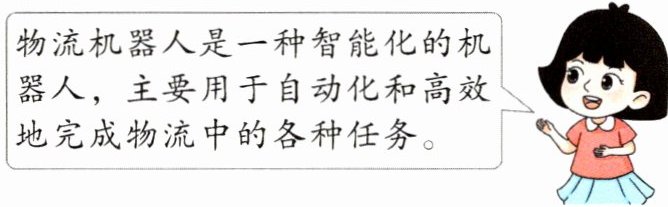 物流机器人是一种智能化的机
器人，主要用于自动化和高效
地完成物流中的各种任务。